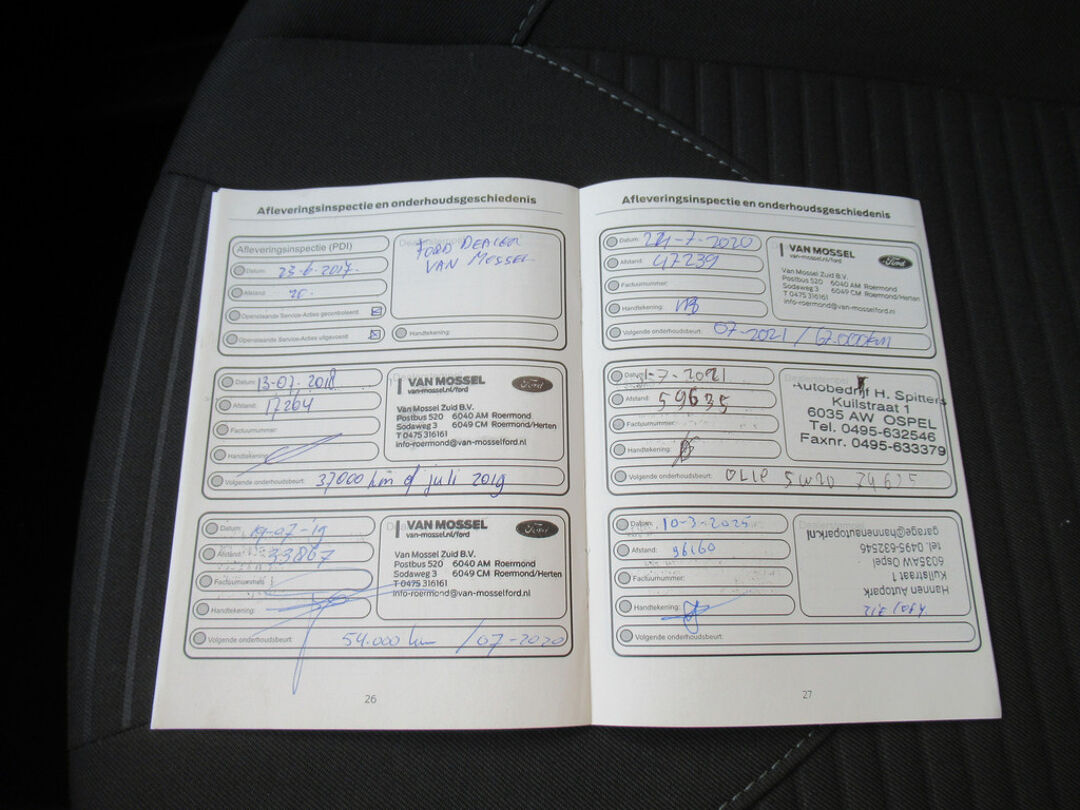 Afleveringsinspectie en onderhoudsgeschiedenis
Afleveringsinspectie (PDI)
Datum: 23-6-2017
Afstand: 20
Openstaande Service-Acties gecontroleerd:
Openstaande Service-Acties uitgevoerd:
FORD DEALER
VAN MOSSEL
Handtekening:
Datum: 13-07-2018
Afstand: 17264
Factuurnummer:
Handtekening:
Volgende onderhoudsbeurt: 37000 km of juli 2019
VAN MOSSEL
van-mossel.nl/ford
Ford
Van Mossel Zuid B.V.
Postbus 520 6040 AM Roermond
Sodaweg 3 6049 CM Roermond/Herten
T 0475 316161
info-roermond@van-mosselford.nl
Datum: 19-07-19
Afstand: 33867
Factuurnummer:
Handtekening:
Volgende onderhoudsbeurt: 54.000 km / 07-2020
VAN MOSSEL
van-mossel.nl/ford
Ford
Van Mossel Zuid B.V.
Postbus 520 6040 AM Roermond
Sodaweg 3 6049 CM Roermond/Herten
T 0475 316161
info-roermond@van-mosselford.nl
26
Afleveringsinspectie en onderhoudsgeschiedenis
Datum: 24-7-2020
Afstand: 47239
Factuurnummer:
Handtekening:
Volgende onderhoudsbeurt: 07-2021 / 67.000km
VAN MOSSEL
van-mossel.nl/ford
Ford
Van Mossel Zuid B.V.
Postbus 520 6040 AM Roermond
Sodaweg 3 6049 CM Roermond/Herten
T 0475 316161
info-roermond@van-mosselford.nl
Datum: 1-7-2021
Afstand: 59635
Factuurnummer:
Handtekening:
Volgende onderhoudsbeurt: OLIE 5W20
Autobedrijf H. Spitters
Kuilstraat 1
6035 AW OSPEL
Tel. 0495-632546
Faxnr. 0495-633379
Datum: 10-3-2025
Afstand: 96160
Factuurnummer:
Handtekening:
Volgende onderhoudsbeurt:
Dealerstempel
Hannen Autopark
Kuilstraat 1
6035AW Ospel
tel. 0495-632546
garage@hannenautopark.nl
27